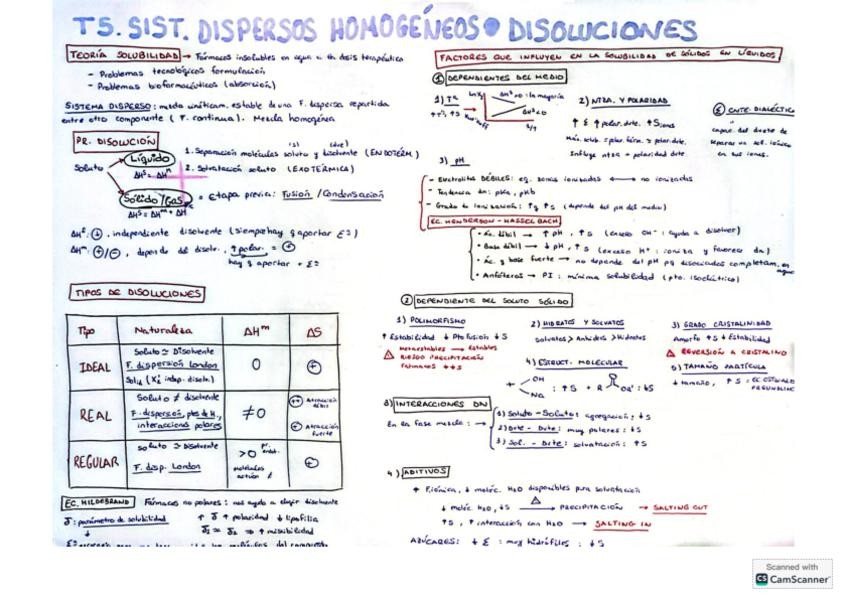 T5. SIST. DISPERSOS HOMOGÉNEOS • DISOLUCIONES
TEORÍA SOLUBILIDAD → Fármacos insolubles en agua a th dosis terapéutica
- Problemas tecnológicos formulación
- Problemas biofarmacéuticos (absorción)
SISTEMA DISPERSO: medio cinéticam. estable de una F. dispersa repartida
entre otro componente (F. continua). Mezcla homogénea
PR. DISOLUCIÓN
Soluto
Líquido
ΔHs = ΔHm
Sólido/Gas
ΔHs = ΔHm + ΔH
1. Separación moléculas soluto y disolvente (ENDOTERM.)
2. Solvatación soluto (EXOTÉRMICA)
= Etapa previa: Fusión / Condensación
ΔHf: (+), independiente disolvente (siempre hay q aportar E)
ΔHm: (+)/(-), depende del disolv. ↑ polar. = (+)
hay q aportar + E
TIPOS DE DISOLUCIONES
TIPO Naturaleza ΔHm ΔS
IDEAL
Soluto ≃ Disolvente
F. dispersión London
0
+
REAL
Soluto ≠ disolvente
F. dispersión, ptes de H,
interacciones polares
≠0
++ Atracción débil
Atracción fuerte
REGULAR
Soluto ≃ Disolvente
F. disp. London
>0
moléculas
+
EC. HILDEBRAND Fármacos no polares: nos ayuda a elegir disolvente
δ: parámetro de solubilidad
↑ δ ↑ polaridad ↓ lipofilia
δ1 ≃ δ2 ⇒ ↑ miscibilidad
FACTORES QUE INFLUYEN EN LA SOLUBILIDAD DE SÓLIDOS EN LÍQUIDOS
① DEPENDIENTES DEL MEDIO
1) Tª
↑Tª, ↑S
ΔH>0: la mayoría
ΔH<0
1/T
2) NTRA. Y POLARIDAD
Influye ntra + polaridad dvte
CNTE. DIALÉCTICA
capac. del dvte de
separar un sol. iónico
en sus iones.
3) pH
- Electrolitos DÉBILES: eq. zonas ionizadas ⟷ no ionizadas
- Tendencia dn: pka, pkb
- Grado de ionización: ↑g ↑S (depende del pH del medio)
EC. HENDERSON - HASSELBACH
• Ác. débil → ↑ pH, ↑S (exceso OH-: ayuda a disolver)
• Base débil → ↓ pH, ↑S (exceso H+: ioniza y favorece dn)
• Ác. y base fuerte → no depende del pH pq disociados completam. en agua
• Anfóteros → PI: mínima solubilidad (pto. isoeléctrico)
② DEPENDIENTE DEL SOLUTO SÓLIDO
1) POLIMORFISMO
↑ Estabilidad ↓ Pto fusión ↓S
Metaestables → Estables
RIESGO PRECIPITACIÓN
2) HIDRATOS Y SOLVATOS
Solvatos > Anhidros > Hidratos
3) GRADO CRISTALINIDAD
Amorfo ↑S ↓ Estabilidad
REVERSIÓN A CRISTALINO
4) ESTRUCT. MOLECULAR
+ OH
Na : ↑S
5) TAMAÑO PARTÍCULA
↓ tamaño, ↑S
3) INTERACCIONES DN
En la fase mezcla: →
1) Soluto - Soluto: agregación: ↓S
2) Dvte - Dvte: muy polares: ↓S
3) Sol. - Dvte: solvatación: ↑S
4) ADITIVOS
↑ F.iónica, ↓ moléc. H2O disponibles para solvatación
↓ moléc H2O, ↓S → PRECIPITACIÓN → SALTING OUT
↑S, ↑ interacción con H2O → SALTING IN
AZÚCARES: ↓ ε : muy hidrófilos : ↓S
Scanned with
CS CamScanner